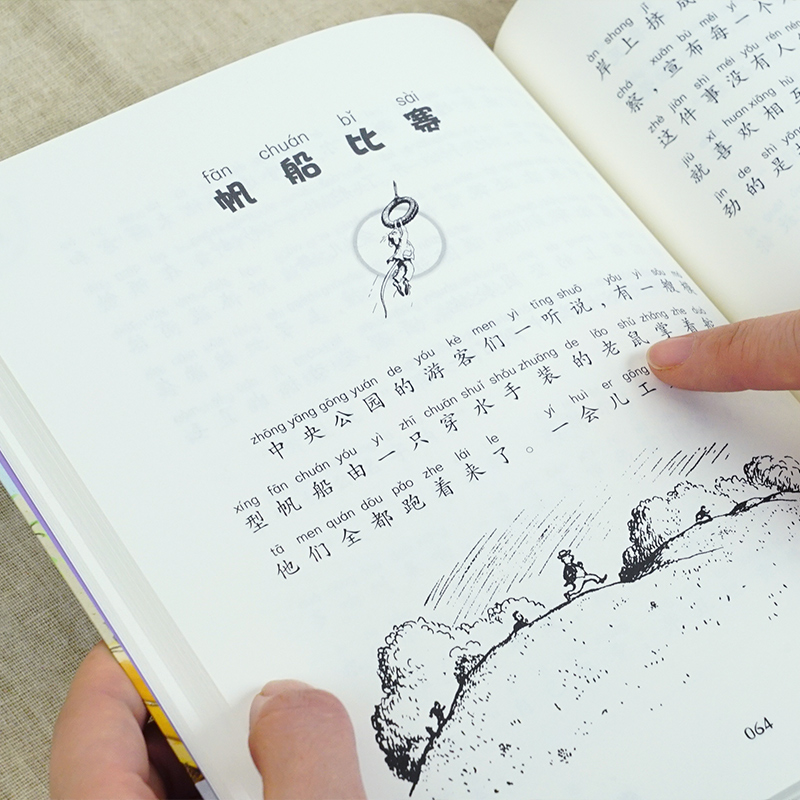 fān chuán bǐ sài
帆船比赛
zhōng yāng gōng yuán de yóu kè men yì tīng shuō yǒu yì sōu
中央公园的游客们一听说，有一艘模
xíng fān chuán yóu yì zhī chuān shuǐ shǒu zhuāng de lǎo shǔ zhǎng zhe duò
型帆船由一只穿水手装的老鼠掌着舵
tā men quán dōu pǎo zhe lái le yí huìr gōng
他们全都跑着来了。一会儿工
064
àn shang jǐ
岸上挤成
chá xuān bù měi yí
察，宣布每一个
zhè jiàn shì méi yǒu rén
这件事没有人
jiù xǐ huan xiāng hù
就喜欢相互
jìn de shì
劲的是